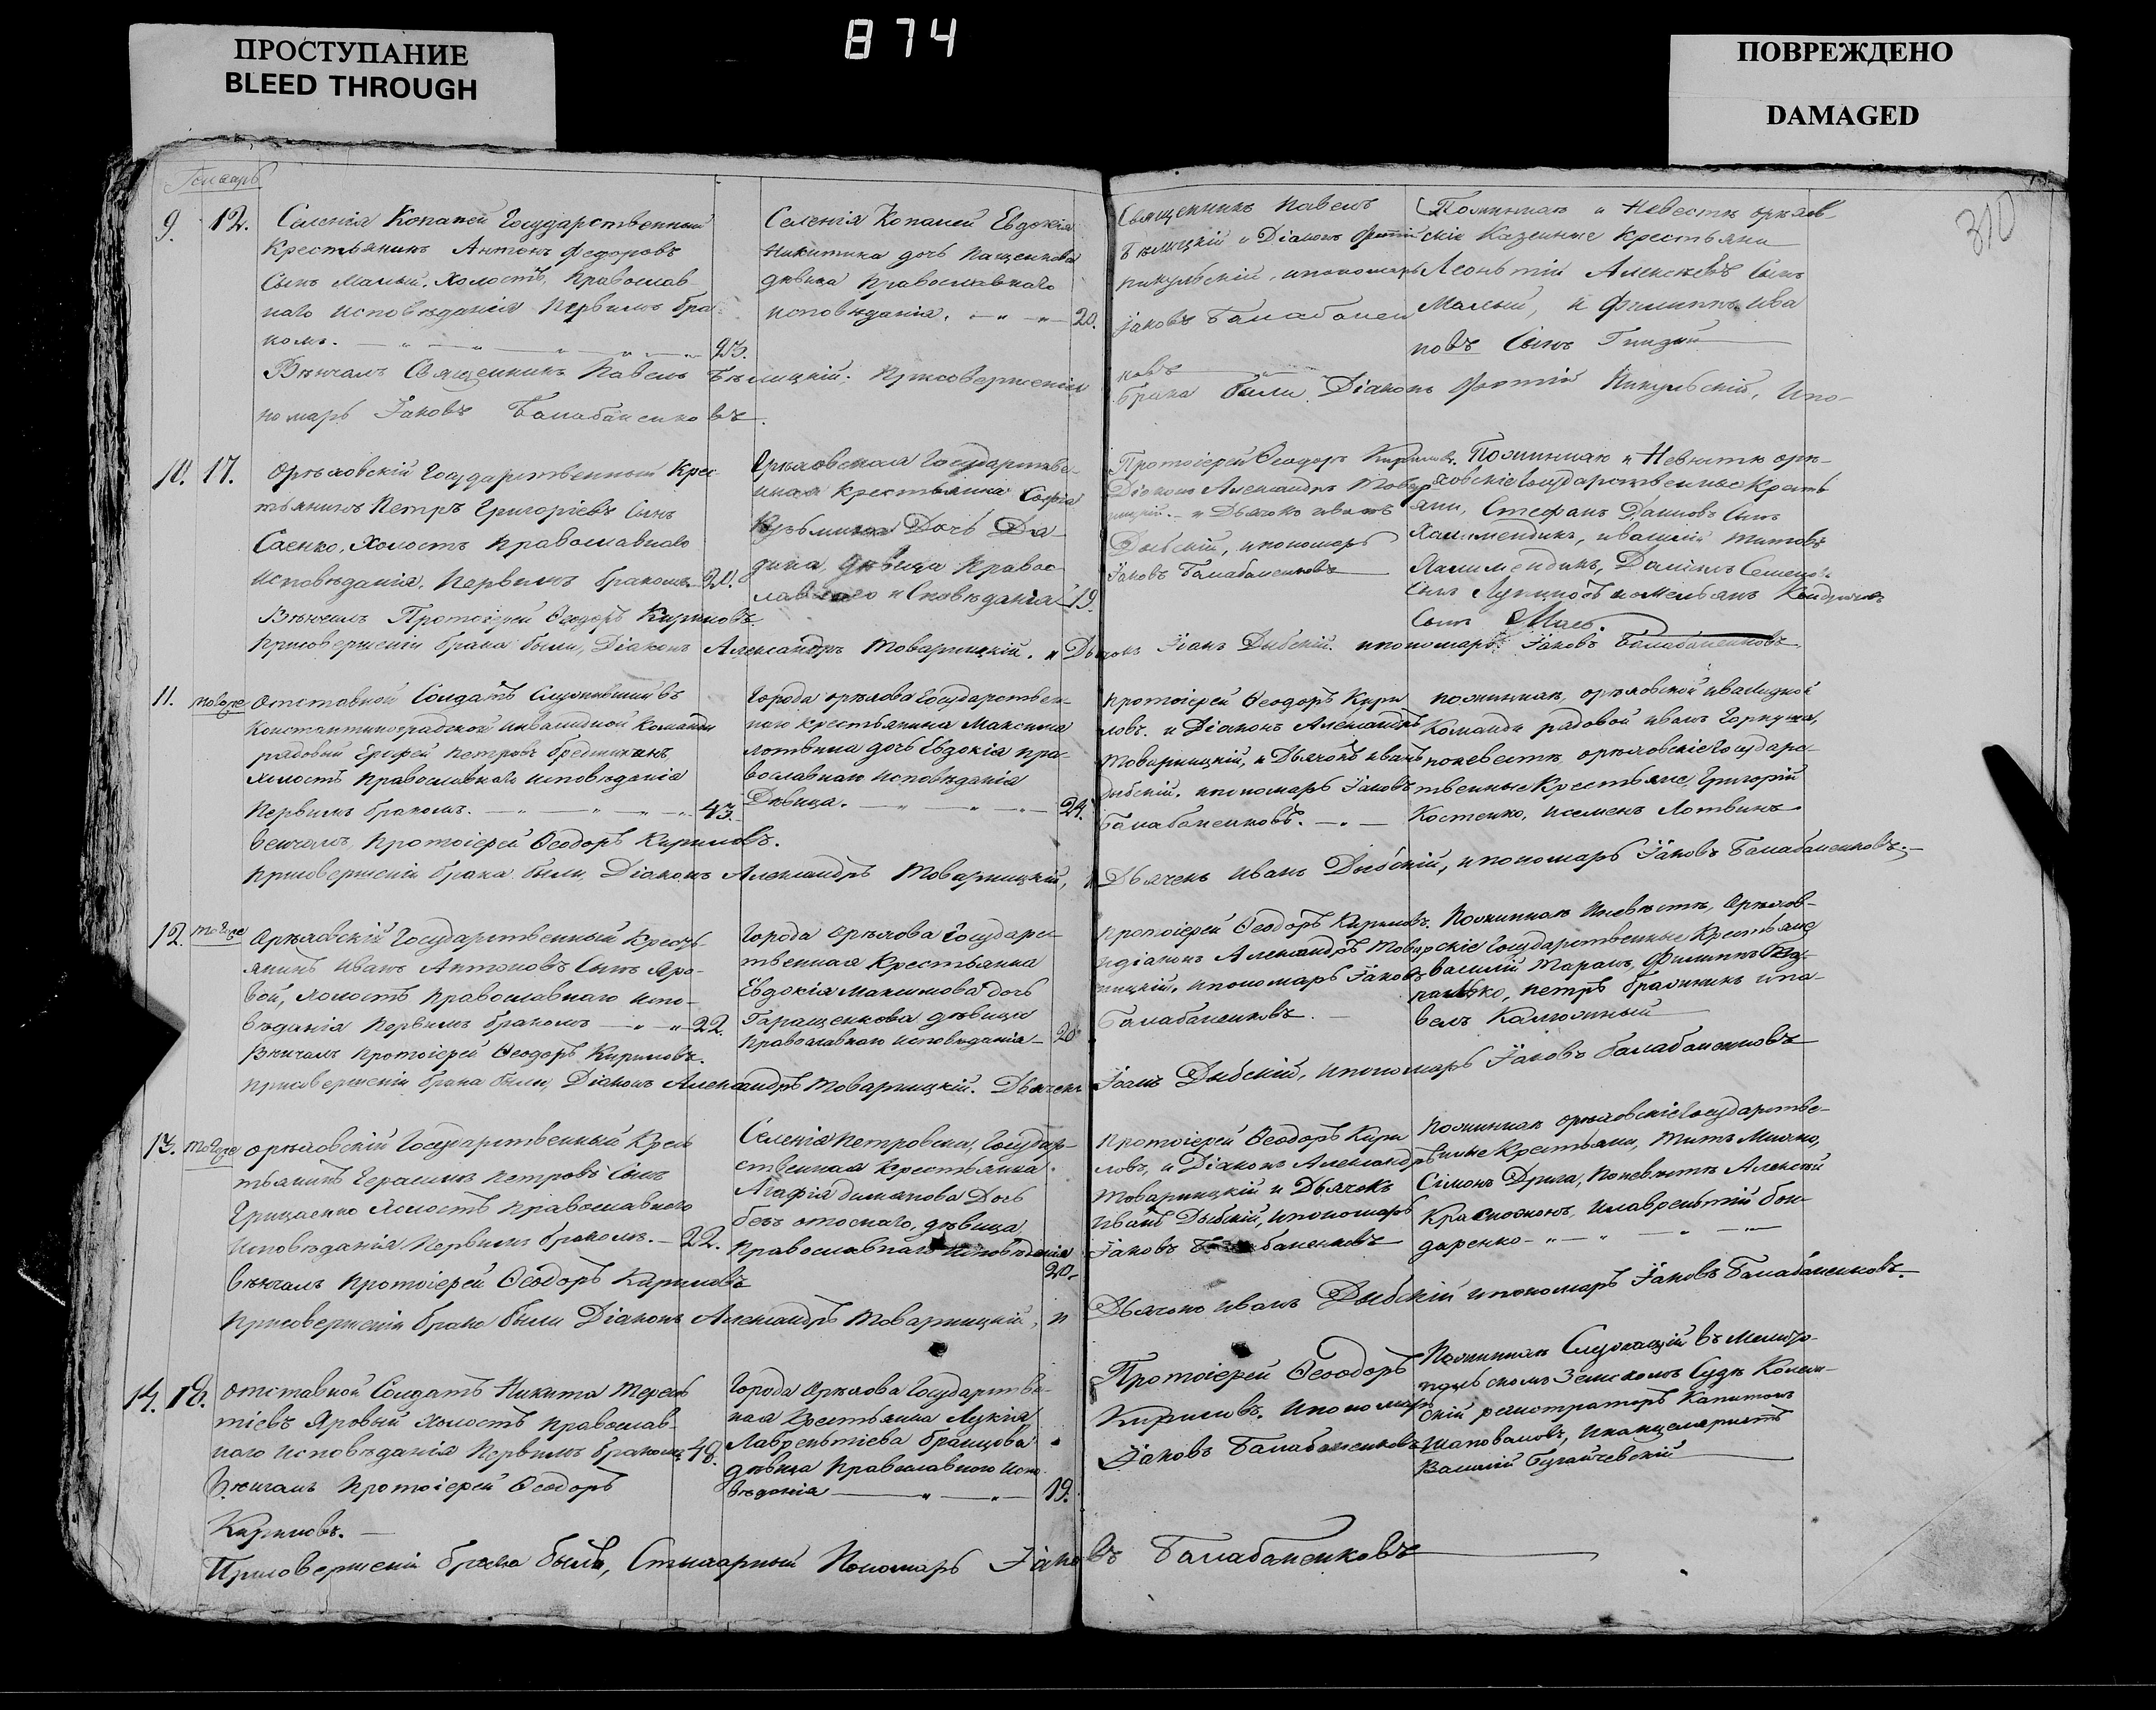 ПРОСТУПАНИЕ
BLEED THROUGH
874
ПОВРЕЖДЕНО
DAMAGED
310
Генварь
9. 12. Селенія Копаней Государственный
Крестьянинъ Антонъ Федоровъ
Сынъ Малый, Холостъ, Православ
наго исповѣданія Первымъ бра
комъ. 23.
Селенія Копаней Евдокія
Никитина дочь Пащенкова
дѣвица Православнаго
исповѣданія. 20.
Священникъ Павелъ
Бѣлицкій и Діаконъ Фотій
Пикульскій, и пономарь
Іаковъ Балабанен
ковъ
По женихѣ и Невестѣ орѣхов
скіе Казенные Крестьяни
Леонътій Алексѣевъ Сынъ
Малый, и Филиппъ Ива
новъ Сынъ Гнидый
Вѣнчалъ Священникъ Павелъ Бѣлицкій. При совершеніи брака были Діаконъ Фотій Пикульскій, и по-
номарь Іаковъ Балабаненковъ.
10. 17. Орѣховскій Государственный Крес
тьянинъ Петръ Григоріевъ Сынъ
Саенко, Холостъ Православнаго
Исповѣданія, Первымъ бракомъ. 20.
Орѣховская Государстве-
нная Крестьянка Софія
Кузьмина Дочь
дѣвица Правос-
лавнаго исповѣданія 19.
Протоіерей Ѳеодоръ Кириловъ.
Діаконъ Александръ Товар
ницкій. и Дьячокъ Иванъ
Дыбскій, и пономарь
Іаковъ Балабаненковъ
По женихѣ и Невѣстѣ орѣ-
ховскіе Государственные Кресть
яни, Стефанъ Даниловъ Сынъ
и Василій Титовъ
Даніилъ Семеновъ
Сынъ
Сынъ
Вѣнчалъ Протоіерей Ѳеодоръ Кириловъ.
При совершеніи брака были, Діаконъ Александръ Товарницкій. и Дьячокъ Іоанъ Дыбскій. и пономарь Іаковъ Балабаненковъ.
11. тогоже Отставной Солдатъ Служившій въ
Константиноградской инвалидной Команди
рядовый Ерофей Петровъ
холостъ Православнаго исповѣданія
Первымъ бракомъ. 43.
Города Орѣхова Государствен-
наго крестьянина Максима
Лотвина дочь Евдокія пра-
вославнаго исповѣданія
Дѣвица. 24.
Протоіерей Ѳеодоръ Кири
ловъ. и Діаконъ Александръ
Товарницкій, и Дьячокъ Иванъ
Дыбскій. и пономарь Іаковъ
Балабаненковъ.
По женихѣ, орѣховской ивалидной
Команди рядовой Иванъ
по невестѣ орѣховскіе Государс-
твенные Крестьяне, Григорій
Костенко, и Семенъ Лотвинъ
Венчалъ, Протоіерей Ѳеодоръ Кириловъ.
При совершеніи брака были, Діаконъ Александръ Товарницкій, и Дьячекъ Иванъ Дыбскій, и пономарь Іаковъ Балабаненковъ.
12. тогоже Орѣховскій Государственный Кресть-
янинъ Иванъ Антоновъ Сынъ Яро-
вой, холостъ Православнаго испо-
вѣданія Первымъ бракомъ 22.
Города Орѣхова Государс-
твенная Крестьянка
Евдокія Максимова дочь
Гаращенкова дѣвица
Православнаго исповѣданія 20
Протоіерей Ѳеодоръ Кириловъ.
и діаконъ Александръ Товар
ницкій. и пономарь Іаковъ
Балабаненковъ.
По женихѣ и невѣстѣ, Орѣхов-
скіе Государственные Крестьяне
Василій Таранъ, Филиппъ
Петръ Бражникъ и Па-
велъ Калюжный
Вѣнчалъ Протоіерей Ѳеодоръ Кириловъ.
При совершеніи брака были, Діаконъ Александръ Товарницкій. Дьячекъ Іоанъ Дыбскій, и пономарь Іаковъ Балабаненковъ
13. тогоже Орѣховскій Государственный Крес
тьянинъ Герасимъ Петровъ Сынъ
Грицаенко Холостъ Православнаго
Исповѣданія Первымъ бракомъ. 22.
Селенія Петровки, Государ-
ственная Крестьянка
Агафія Дочь
дѣвица
Православнаго исповѣданія
20.
Протоіерей Ѳеодоръ Кири
ловъ, и Діаконъ Александръ
Товарницкій и Дьячокъ
Иванъ Дыбскій, и пономарь
Іаковъ Балабаненковъ
По женихѣ орѣховскіе Государстве-
нные Крестьяни, Титъ
Сімонъ Дрига, По невѣстѣ Алексѣй
и Лаврентій Бон-
даренко
Вѣнчалъ Протоіерей Ѳеодоръ Кириловъ
При совершеніи брака были Діаконъ Александръ Товарницкій, и Дьячокъ Иванъ Дыбскій и пономарь Іаковъ Балабаненковъ.
14. 18. Отставной Солдатъ Никита Терен
тіевъ Яровый холостъ Православ-
наго исповѣданія Первымъ бракомъ 48.
Города Орѣхова Государстве-
ная Крестьянка Лукія
Лаврентіева
дѣвица Православнаго Испо
вѣданія 19.
Протоіерей Ѳеодоръ
Кириловъ. и пономарь
Іаковъ Балабаненковъ
По женихѣ Служащій въ Мелито-
польскомъ Земскомъ Судѣ Колеж-
скій регистраторъ Капитонъ
Шаповаловъ, и канцеляристъ
Василій
Вѣнчалъ Протоіерей Ѳеодоръ
Кириловъ.
При совершеніи брака былъ, Пономарь Іаковъ Балабаненковъ